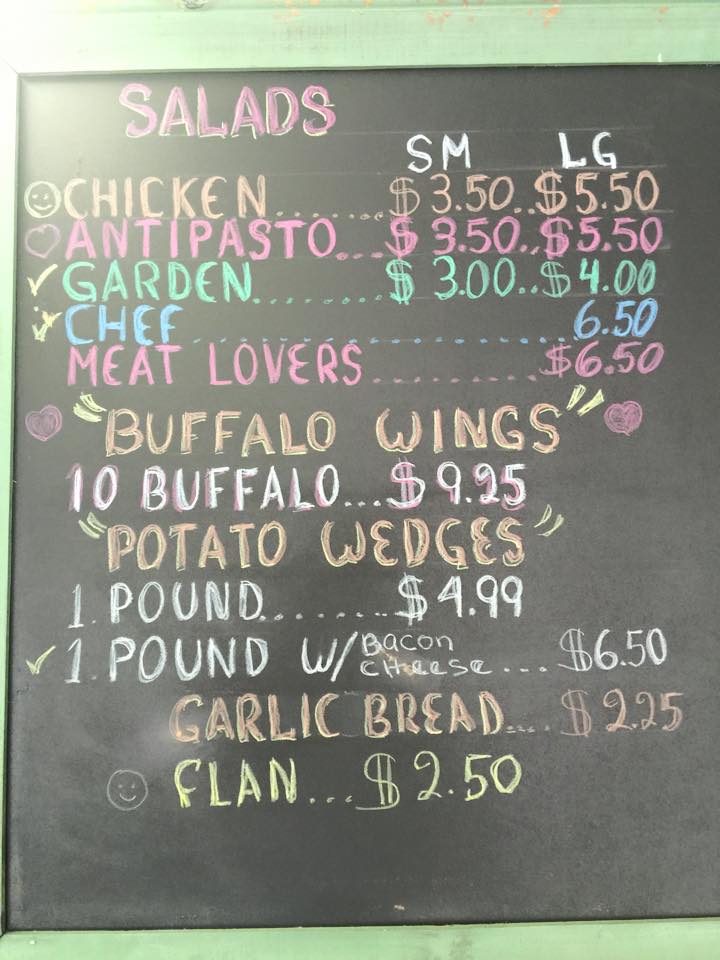 SALADS
SM LG
CHICKEN......$3.50..$5.50
ANTIPASTO...$3.50..$5.50
GARDEN........$3.00..$4.00
CHEF................6.50
MEAT LOVERS.......$6.50
"BUFFALO WINGS"
10 BUFFALO...$9.25
"POTATO WEDGES"
1. POUND.......$4.99
1. POUND W/ Bacon cheese...$6.50
GARLIC BREAD...$2.25
FLAN...$2.50